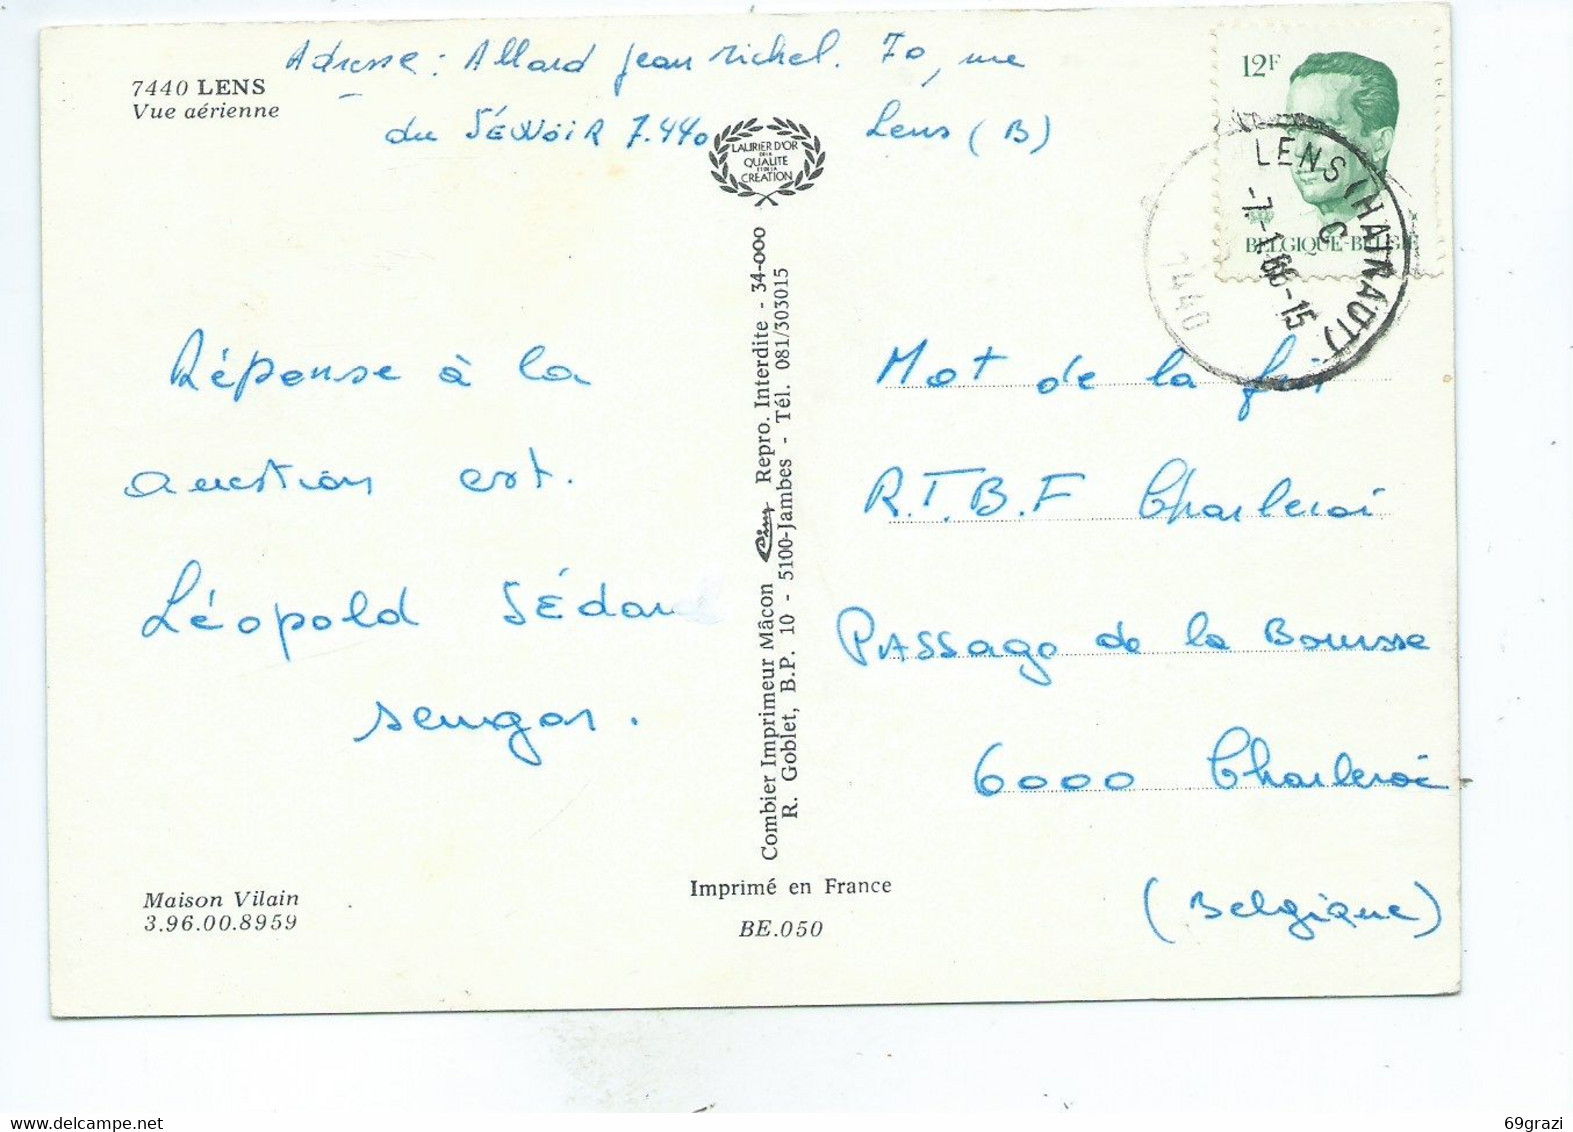 Adresse : Allard Jean Michel. 70, rue
du SÉUVOIR 7.440 Lens (B)
7440 LENS
Vue aérienne
LAURIER D'OR
DE LA
QUALITE
ET DE LA
CREATION
12F
BELGIQUE-BELGIË
LENS (HAINAUT)
C
7440
Réponse à la
question est.
Léopold SÉdar
sengor.
Combier Imprimeur Mâcon Cim Repro. Interdite - 34-000
R. Goblet, B.P. 10 - 5100-Jambes - Tél. 081/303015
Mot de la fin
R.T.B.F Charleroi
PASSage de la Bourse
6000 Charleroi
(Belgique)
Maison Vilain
3.96.00.8959
Imprimé en France
BE.050
69grazi